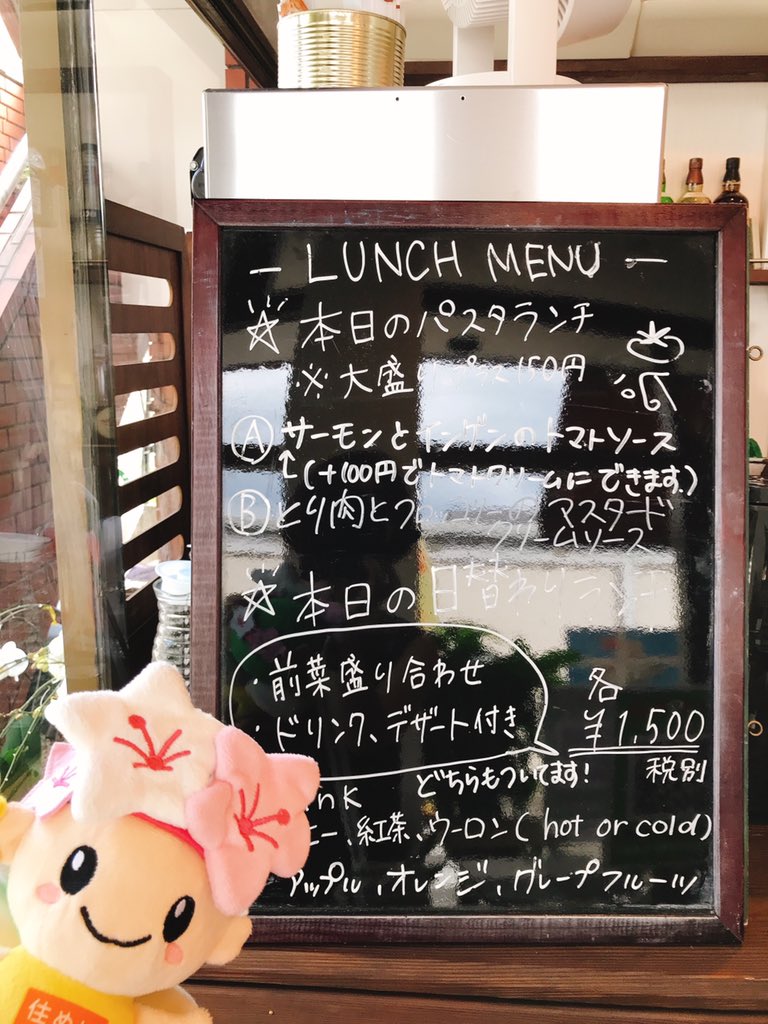 - LUNCH MENU -
☆ 本日のパスタランチ
※ 大盛り プラス150円
Ⓐ サーモンとインゲンのトマトソース
(+100円でトマトクリームにできます。)
Ⓑ とり肉とブロッコリーのマスタード
クリームソース
☆ 本日の日替わりランチ
・前菜盛り合わせ
・ドリンク、デザート付き
各
¥1,500
税別
どちらもついてます!
nk
ー、紅茶、ウーロン(hot or cold)
アップル、オレンジ、グレープフルーツ
住め